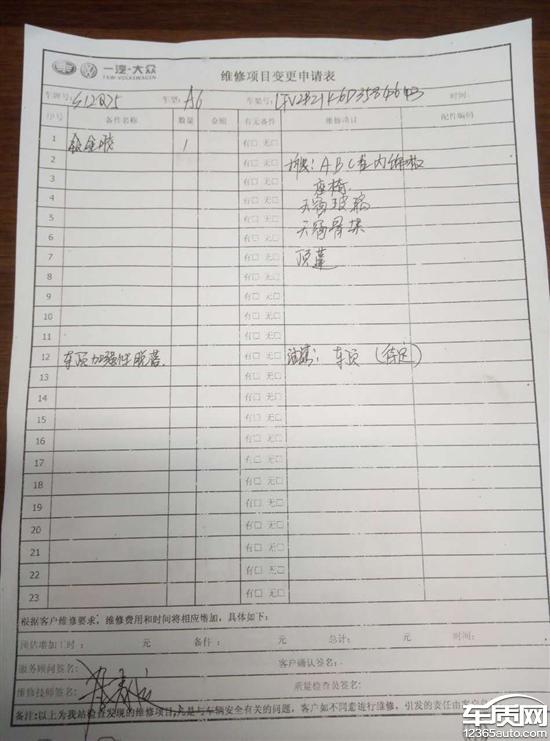 一汽-大众
FAW-VOLKSWAGEN
维修项目变更申请表
车牌号: 车型: A6 车架号: 时间:
序号 备件名称 数量 金额 有无备件 维修项目 配件编码
1 钣金胶 1 有□ 无□
2 有□ 无□ A B C柱内饰板
3 有□ 无□ 座椅
4 有□ 无□ 天窗玻璃
5 有□ 无□ 天窗骨架
6 有□ 无□
7 有□ 无□ 顶蓬
8 有□ 无□
9 有□ 无□
10 有□ 无□
11 有□ 无□
12 车顶加强件脱落. 有□ 无□ 车顶 (待定)
13 有□ 无□
14 有□ 无□
15 有□ 无□
16 有□ 无□
17 有□ 无□
18 有□ 无□
19 有□ 无□
20 有□ 无□
21 有□ 无□
22 有□ 无□
23 有□ 无□
根据客户维修要求，维修费用和时间将相应增加，具体如下:
预估增加工时: 元 备件: 元 总计: 元 时间:
服务顾问签名: 客户确认签名:
维修技师签名: 质量检查员签名:
备注:以上为我站检查发现的维修项目,凡是与车辆安全有关的问题，客户如不同意进行维修，引发的责任由
车质网
12365auto.com